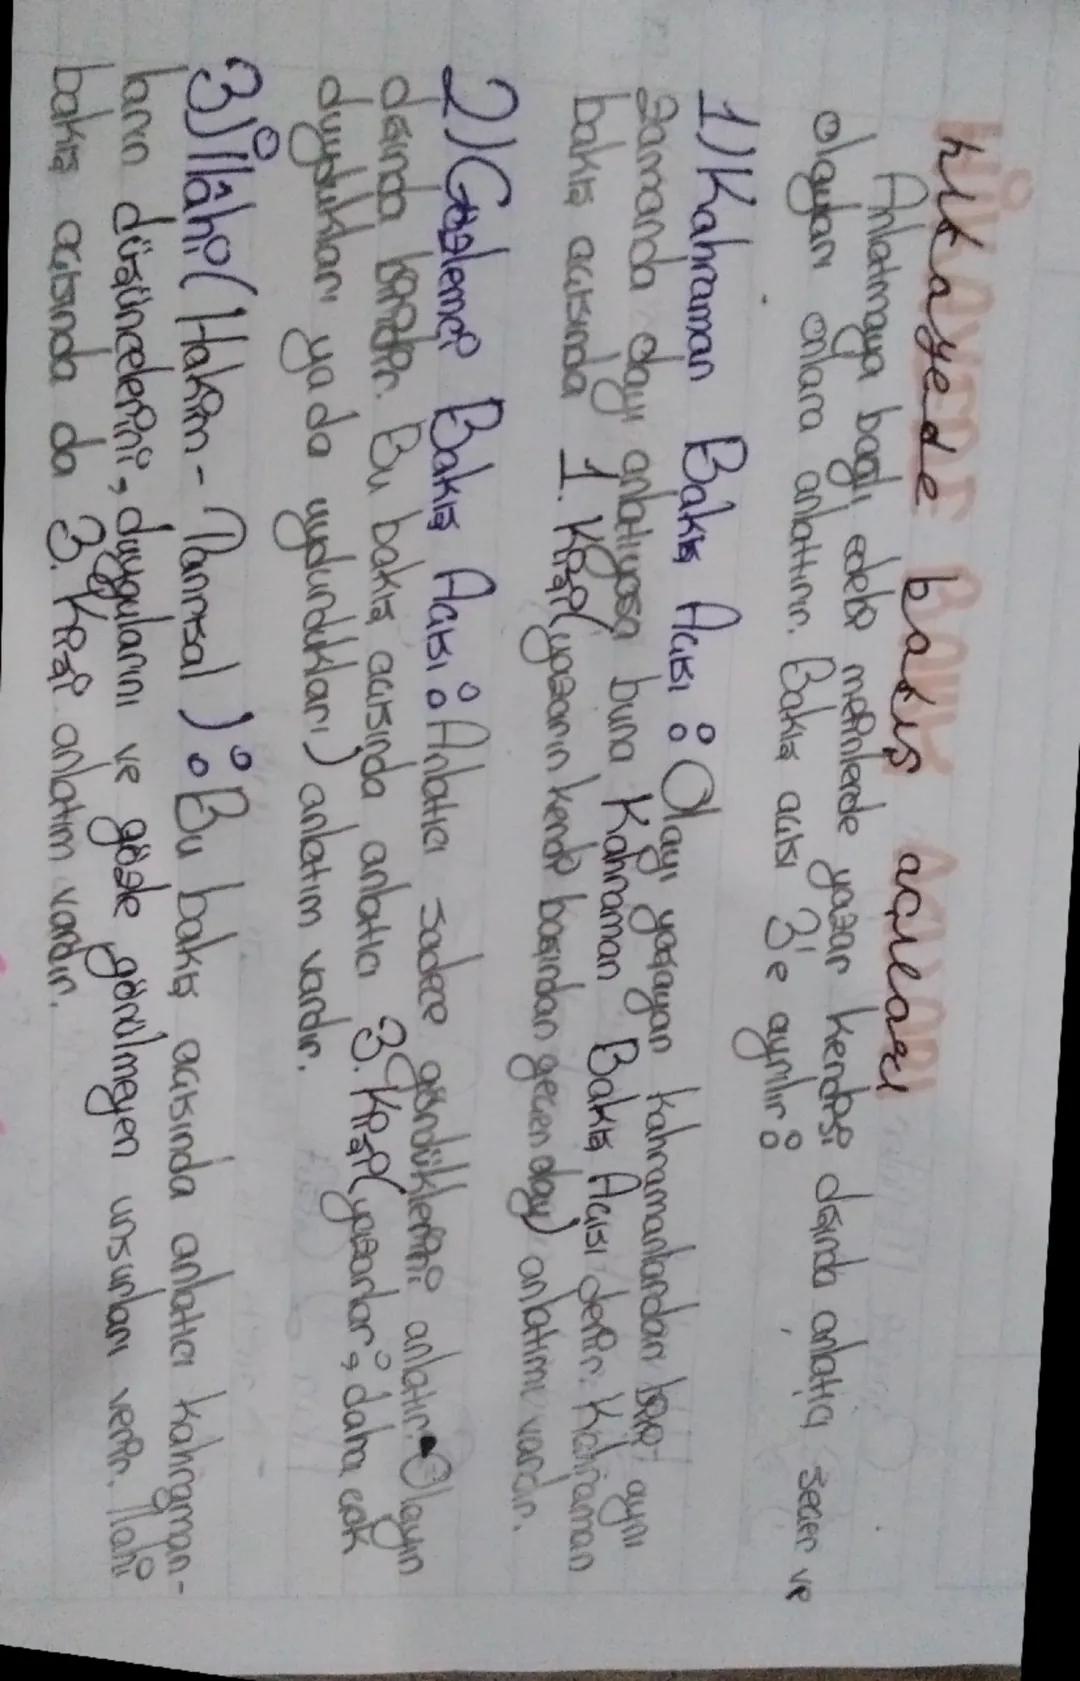 hikayede bakış açıları
Anlatmaya bağlı edebi metinlerde yazar kendisi dışında anlatıcı seçer ve
olayları onlara anlattırır. Bakış açısı 3'e ayrılır:
1) Kahraman Bakış Açısı: Olayı yaşayan kahramanlardan biri aynı
zamanda olayı anlatıyosa buna Kahraman Bakış Açısı denir. Kahraman
bakış açısında 1. Kişi (yazarın kendi başından geçen olay) anlatımı vardır.
2) Gözlemci Bakış Açısı: Anlatıcı sadece gördüklerini anlatır. Olayın
dışında biridir. Bu bakış açısında anlatıcı 3. Kişi (yazarlar, daha çok
duydukları ya da uydurdukları) anlatım vardır.
3) İlâhi (Hakim-Tanrısal): Bu bakış açısında anlatıcı kahraman-
ların düşüncelerini, duygularını ve gözle görülmeyen unsurları verir. İlahi
bakış açısında da 3. Kişi anlatım vardır.